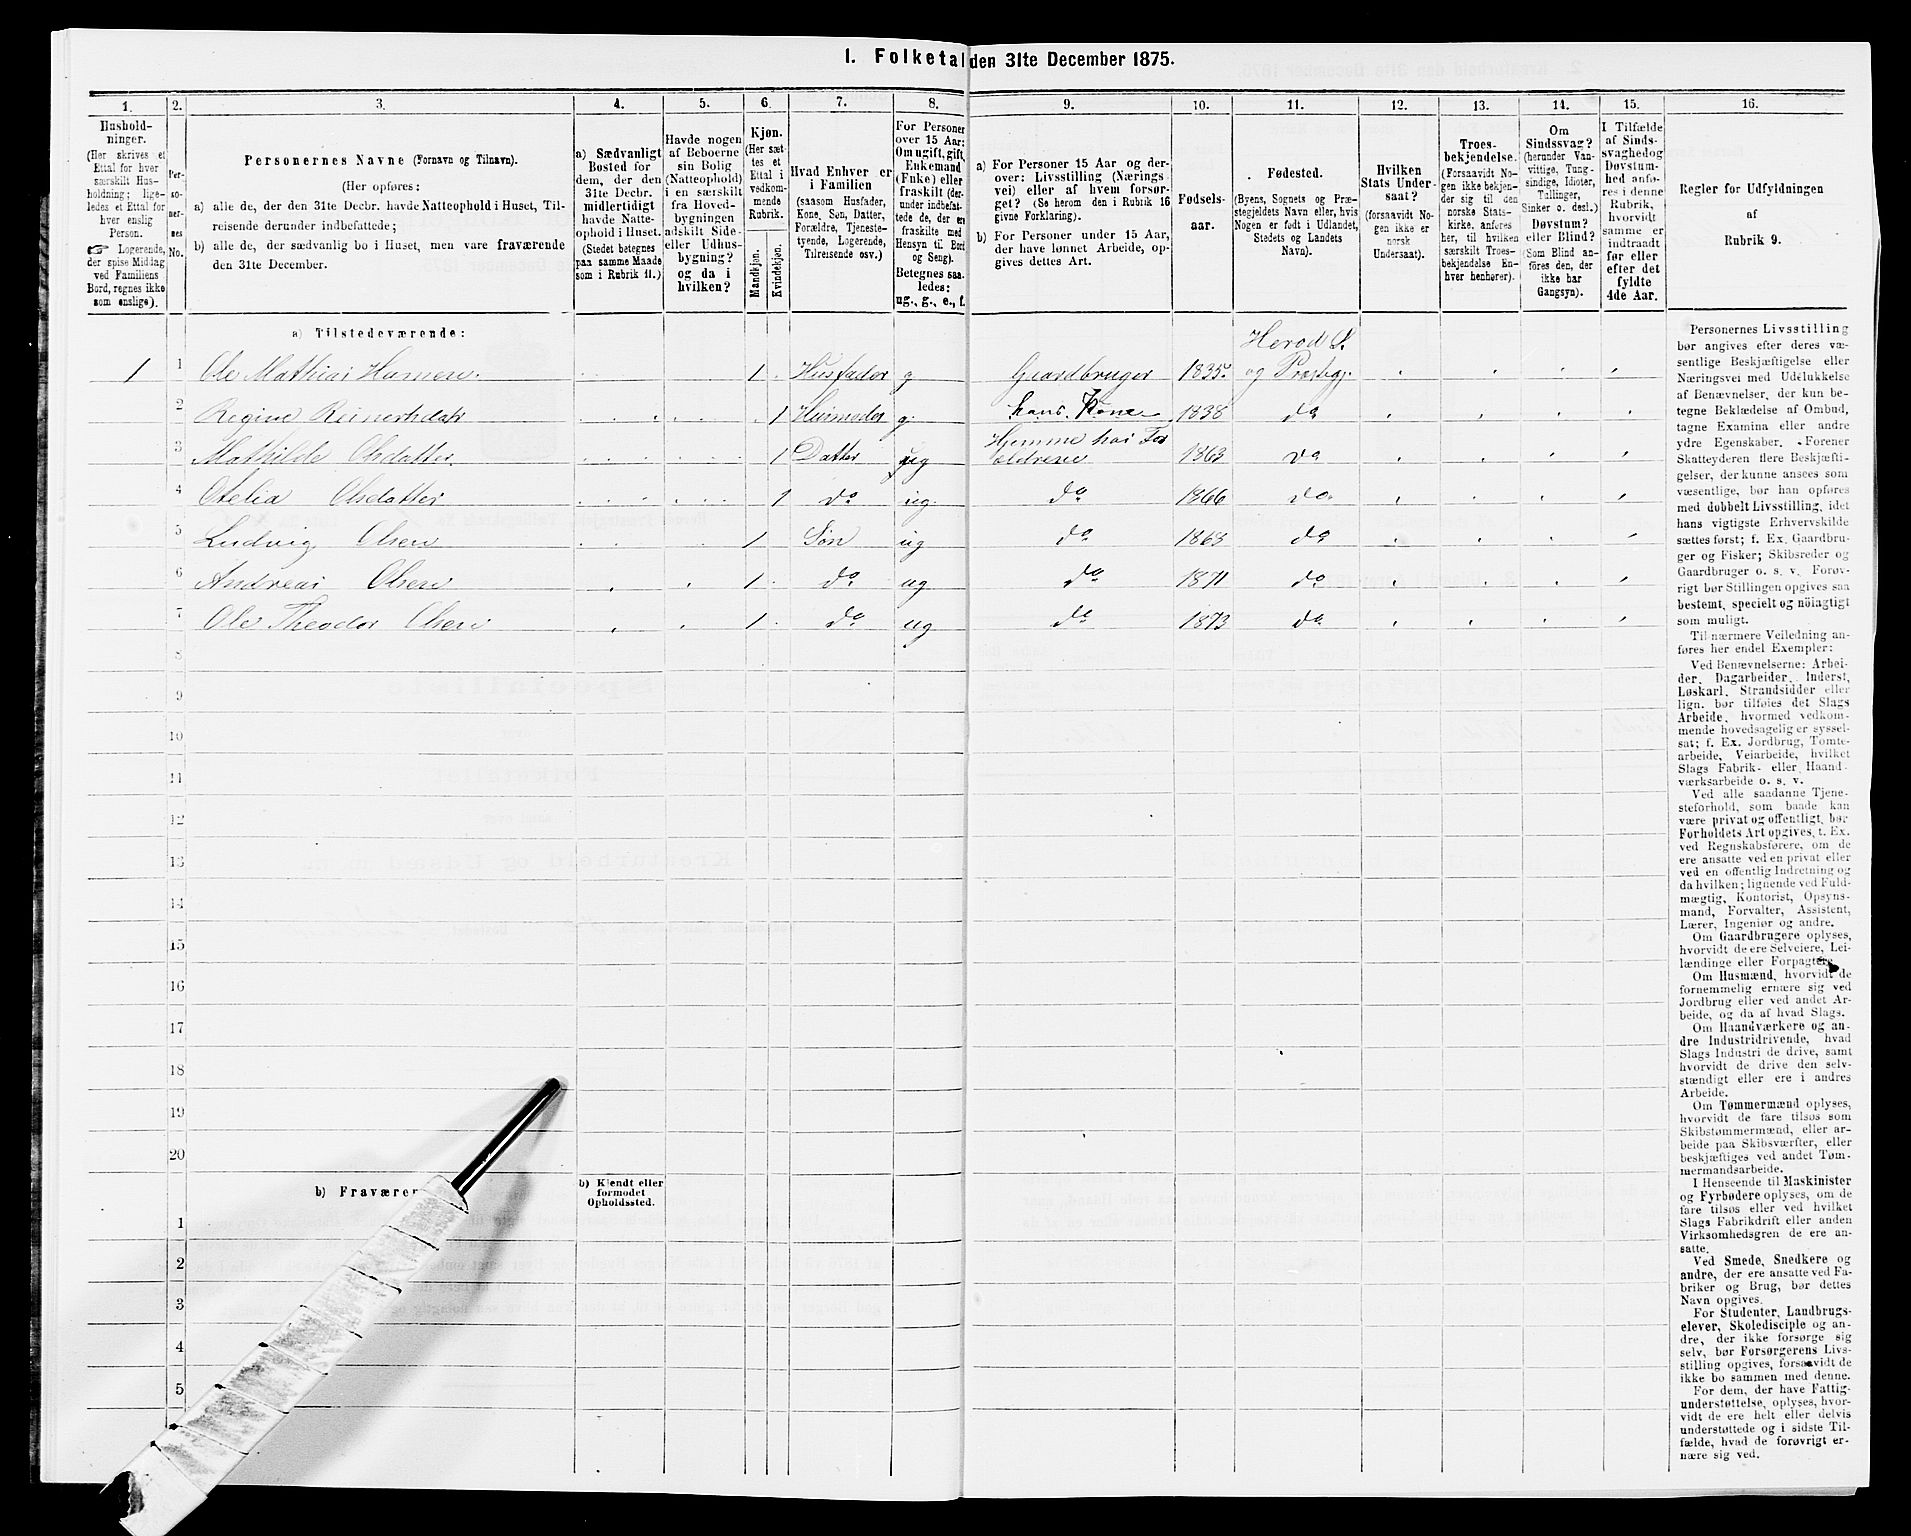 1. Folketal den 31te December 1875.
1. 2. 3. 4. 5. 6. 7. 8. 9. 10. 11. 12. 13. 14. 15. 16.
Hushold-
ninger.
(Her skrives et
Ettal for hver
særskilt Hus-
holdning; lige-
ledes et Ettal for
hver enslig
Person.
☞ Logerende,
der spise Middag
ved Familiens
Bord, regnes ikke
som enslige).
Per-
so-
ner-
nes
No.
Personernes Navne (Fornavn og Tilnavn).
(Her opføres:
a) alle de, der den 31te Decbr. havde Natteophold i Huset, Til-
reisende derunder indbefattede;
b) alle de, der sædvanlig bo i Huset, men vare fraværende
den 31te December.
a) Sædvanligt
Bosted for
dem, der den
31te Decbr.
midlertidigt
havde Natte-
ophold i Huset.
(Stedet betegnes
paa samme Maade
som i Rubrik 11.)
Havde nogen
af Beboerne
sin Bolig
(Natteophold)
i en særskilt
fra Hoved-
bygningen
adskilt Side-
eller Udhus-
bygning?
og da i
hvilken?
Kjøn.
(Her sæt-
tes et
Ettal i
vedkom-
mende
Rubrik.
Mandkjøn.
Kvindekjøn.
Hvad Enhver er
i Familien
(saasom Husfader,
Kone, Søn, Datter,
Forældre, Tjeneste-
tyende, Logerende,
Tilreisende osv.)
For Personer
over 15 Aar:
Om ugift, gift,
Enkemand
(Enke) eller
fraskilt (der-
under indbefat-
tede de, der ere
fraskilte med
Hensyn til Bord
og Seng).
Betegnes saa-
ledes:
ug., g., e., f.
a) For Personer 15 Aar og der-
over: Livsstilling (Nærings-
vei) eller af hvem forsør-
get? (Se herom den i Rubrik 16
givne Forklaring.)
b) For Personer under 15 Aar,
der have lønnet Arbeide, op-
gives dettes Art.
Fødsels-
aar.
Fødested.
(Byens, Sognets og Præ-
stegjeldets Navn eller, hvis
Nogen er født i Udlandet,
Stedets og Landets
Navn).
Hvilken
Stats Under-
saat?
(forsaavidt No-
gen ikke er
norsk
Undersaat).
Troes-
bekjendelse.
(Forsaavidt No-
gen ikke bekjen-
der sig til den
norske Stats-
kirke, anføres
her, til hvilken
særskilt Troes-
bekjendelse En-
hver henhører).
Om
Sindssvag?
(herunder Van-
vittige, Tung-
sindige, Idioter,
Tullinger,
Sinker o. desl.)
Døvstum?
eller Blind?
(Som Blind an-
føres den, der
ikke har
Gangsyn).
I Tilfælde
af Sinds-
svaghed og
Døvstum-
hed anfø-
res i denne
Rubrik,
hvorvidt
samme er
indtraadt
før eller
efter det
fyldte
4de Aar.
Regler for Udfyldningen
af
Rubrik 9.
a) Tilstedeværende:
Herod S.
1 1 Ole Mathias Hansen. 1 Husfader g Gaardbruger 1835 og Præstegj.
2 Regine Reinertsdatr 1 Husmoder g. hans Kone 1838 do
Hjemme hos For
3 Mathilde Olsdatter 1 Datter ug ældrene 1863 do
4 Otelia Olsdatter 1 do ug. do 1866 do
5 Ludvig Olsen 1 Søn ug do 1868 do
6 Andreas Olsen 1 do ug do 1871 do
7 Ole Theodor Olsen 1 do ug do 1873 do
8
9
10
11
12
13
14
15
16
17
18
19
20
b) Fraværen
b) Kjendt eller
formodet
Opholdssted.
1
2
3
4
5
Personernes Livsstilling
bør angives efter deres væ-
sentlige Beskjæftigelse eller
Næringsvei med Udelukkelse
af Benævnelser, der kun be-
tegne Beklædelse af Ombud,
tagne Examina eller andre
ydre Egenskaber. Forener
Skatteyderen flere Beskjæfti-
gelser, der kunne ansees som
væsentlige, bør han opføres
med dobbelt Livsstilling, idet
hans vigtigste Erhvervskilde
sættes først; f. Ex. Gaardbru-
ger og Fisker; Skibsreder og
Gaardbruger o. s. v. Forøv-
rigt bør Stillingen opgives saa
bestemt, specielt og nøiagtigt
som muligt.
Til nærmere Veiledning an-
føres her endel Exempler:
Ved Benævnelserne: Arbei-
der, Dagarbeider, Inderst,
Løskarl, Strandsidder eller
lign. bør tilføies det Slags
Arbeide, hvormed vedkom-
mende hovedsagelig er syssel-
sat; f. Ex. Jordbrug, Tomte-
arbeide, Veiarbeide, hvilket
Slags Fabrik- eller Haand-
værksarbeide o. s. v.
Ved alle saadanne Tjene-
steforhold, som baade kan
være privat og offentligt, bør
Forholdets Art opgives, t. Ex.
ved Regnskabsførere, om de
ere ansatte ved en privat eller
ved en offentlig Indretning og
da hvilken; lignende ved Fuld-
mægtig, Kontorist, Opsyns-
mand, Forvalter, Assistent,
Lærer, Ingeniør og andre.
Om Gaardbrugere oplyses,
hvorvidt de ere Selveiere, Lei-
lændinge eller Forpagtere.
Om Husmænd, hvorvidt de
fornemmelig ernære sig ved
Jordbrug eller ved andet Ar-
beide, og da af hvad Slags.
Om Haandværkere og an-
dre Industridrivende, hvad
Slags Industri de drive, samt
hvorvidt de drive den selv-
stændigt eller ere i andres
Arbeide.
Om Tømmermænd oplyses,
hvorvidt de fare tilsøs som
Skibstømmermænd, eller ar-
beide paa Skibsværfter, eller
beskjæftiges ved andet Tøm-
mermandsarbeide.
I Henseende til Maskinister
og Fyrbødere oplyses, om de
fare tilsøs eller ved hvilket
Slags Fabrikdrift eller anden
Virksomhedsgren de ere an-
satte.
Ved Smede, Snedkere og
andre, der ere ansatte ved Fa-
briker og Brug, bør dettes
Navn opgives.
For Studenter, Landbrugs-
elever, Skoledisciple og an-
dre, der ikke forsørge sig
selv, bør Forsørgerens Livs-
stilling opgives, forsaavidt de
ikke bo sammen med denne.
For dem, der have Fattig-
understøttelse, oplyses, hvor-
vidt de ere helt eller delvis
understøttede og i sidste Til-
fælde, hvad de forøvrigt er-
nære sig ved.